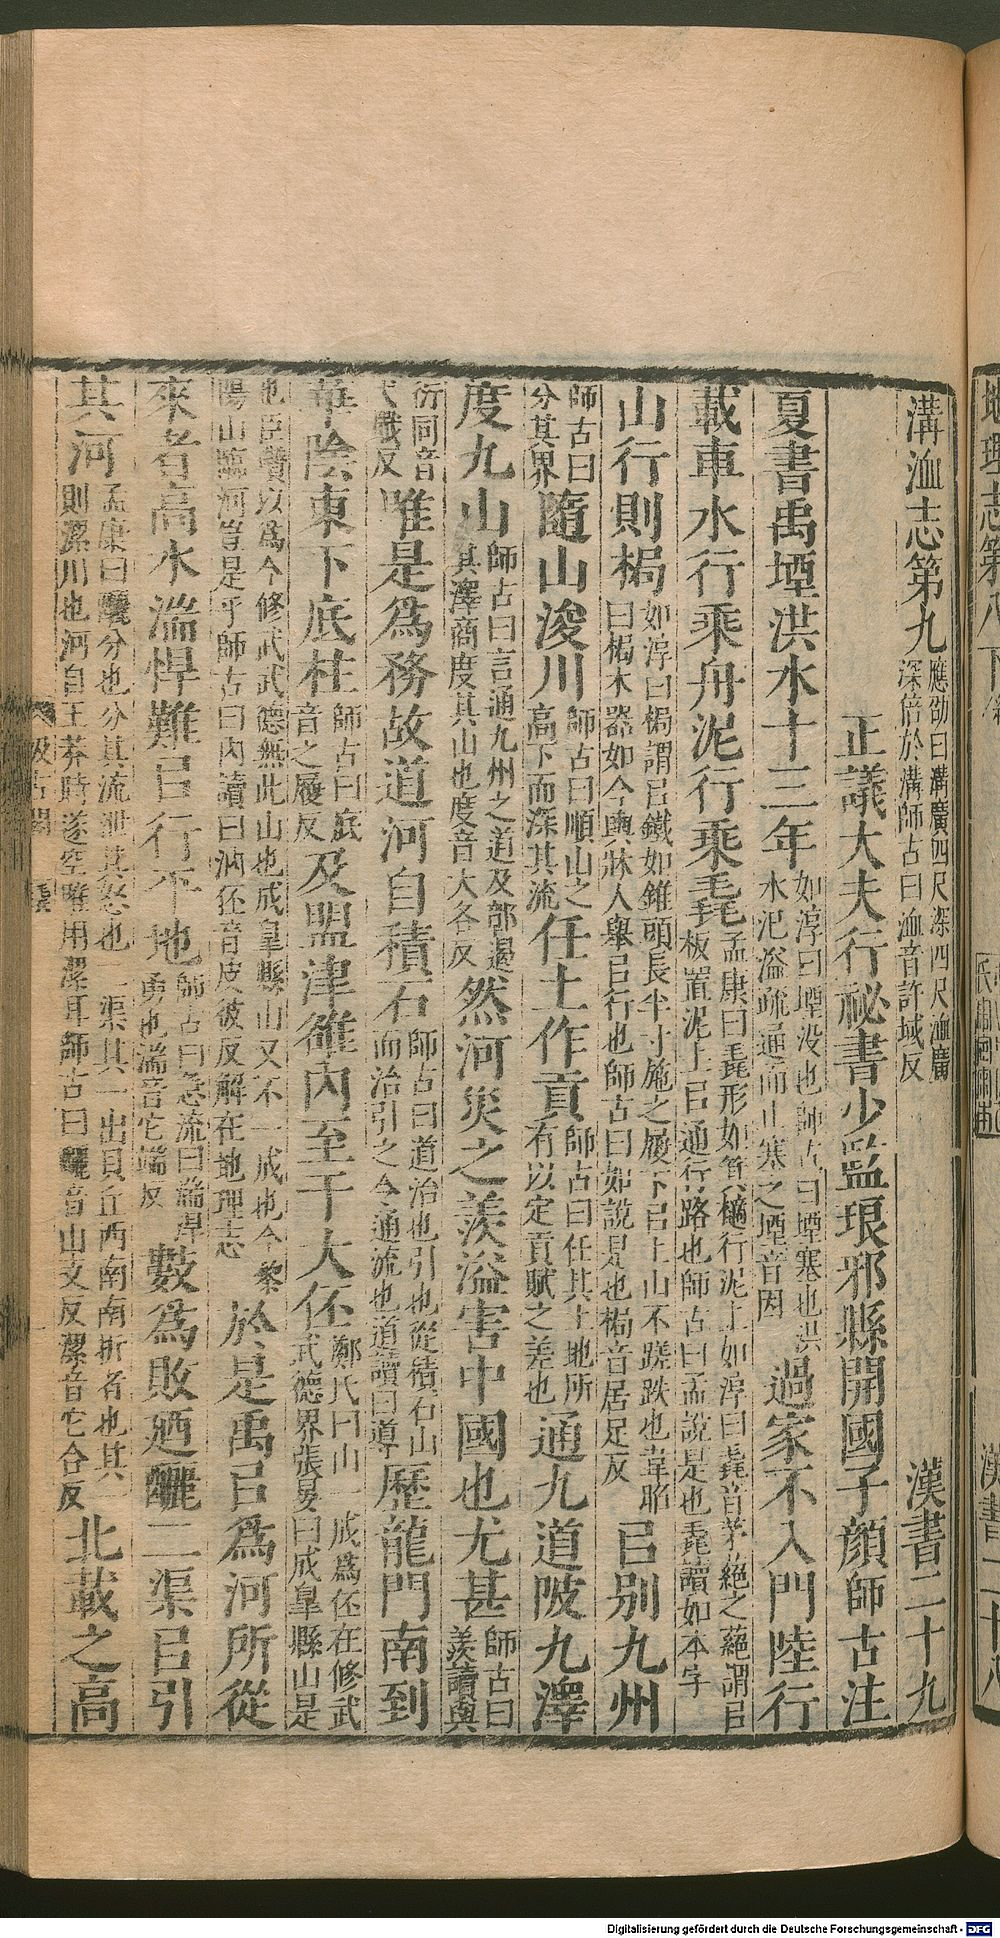 溝洫志第九應劭曰溝廣四尺深四尺洫廣深倍於溝師古曰洫音許域反 漢書二十九
正議大夫行祕書少監琅邪縣開國子顏師古注
夏書禹堙洪水十三年如淳曰堙没也師古曰堙塞也洪水汜溢疏通而止塞之堙音因過家不入門陸行
載車水行乘舟泥行乘毳孟康曰毳形如箕擿行泥上如淳曰毳音茅蕝之蕝謂㠯板置泥上㠯通行路也師古曰孟說是也毳讀如本字
山行則梮如淳曰梮謂㠯鐵如錐頭長半寸施之履下㠯上山不蹉跌也韋昭曰梮木器如今輿牀人舉㠯行也師古曰如說是也梮音居足反㠯別九州
師古曰分其界隨山浚川師古曰順山之高下而深其流任土作貢師古曰任其土地所有以定貢賦之差也通九道陂九澤
度九山師古曰言通九州之道及鄣遏其澤商度其山也度音大各反然河災之羨溢害中國也尤甚師古曰羨讀與
衍同音弋戰反唯是爲務故道河自積石師古曰道治也引也從積石山而治引之令通流也道讀曰導歷龍門南到
華陰東下底柱師古曰底音之履反及盟津雒內至于大伾鄭氏曰山一成爲伾在修武武德界張晏曰成皐縣山是
也臣瓚以爲今修武武德無此山也成皐縣山又不一成也今黎陽山臨河豈是乎師古曰內讀曰汭伾音皮彼反解在地理志於是禹㠯爲河所從
來者高水湍悍難㠯行平地師古曰急流曰湍悍勇也湍音它端反數爲敗迺釃二渠㠯引
其河孟康曰釃分也分其流泄其怒也二渠其一出貝丘西南南折者也其一則漯川也河自王莽時遂空唯用漯耳師古曰釃音山支反漯音它合反北載之高
Digitalisierung gefördert durch die Deutsche Forschungsgemeinschaft - DFG